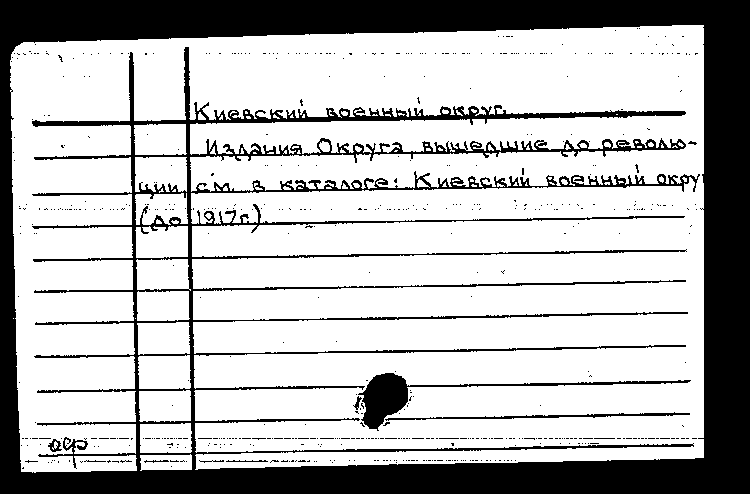 Киевский военный округ.
Издания Округа, вышедшие до револю-
ции, см. в каталоге: Киевский военный окру
(до 1917г.)